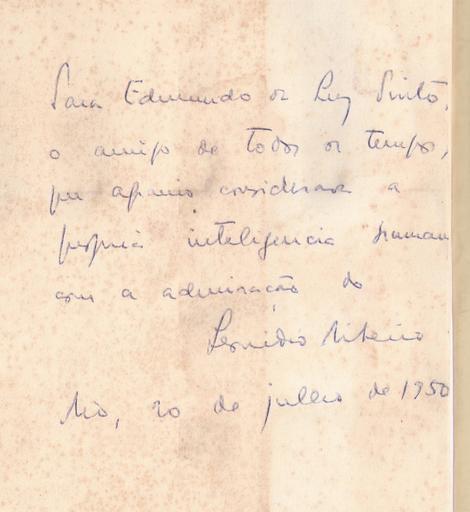 Para Edmundo da Luz Pinto,
o amigo de todos os tempos,
que Afranio considerava a
propria inteligencia humana
com a admiração do
Leonidio Ribeiro
Rio, 20 de julho de 1950